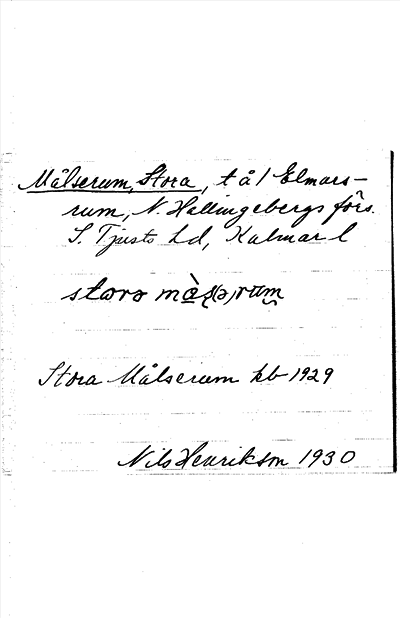 Målserum, Stora, t å 1 Elmars-
rum, N. Hallingebergs förs.
S. Tjusts hd, Kalmar l
storo
Stora Målserum kb 1929
Nils Henrikson 1930